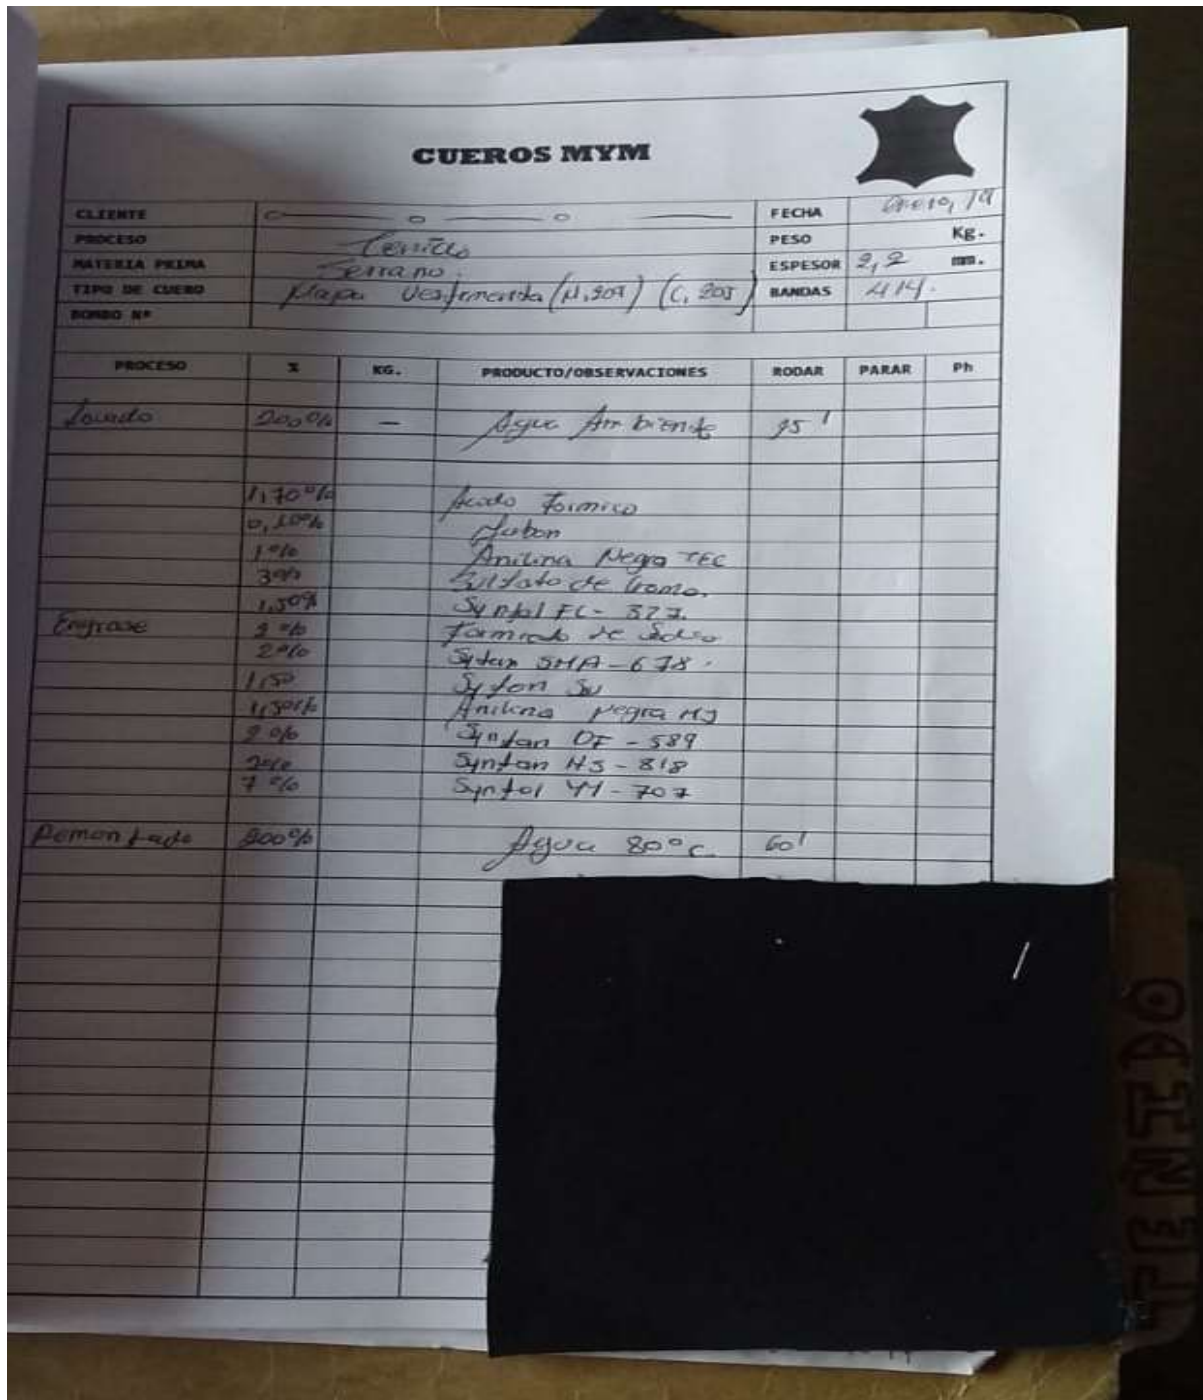 CUEROS MYM
CLIENTE FECHA enero, 19
PROCESO Teñido PESO Kg.
MATERIA PRIMA Serrano. ESPESOR 2,2 mm.
TIPO DE CUERO Napa Vestimenta (N, 209) (C, 205) BANDAS 414.
BOMBO Nº
PROCESO % KG. PRODUCTO/OBSERVACIONES RODAR PARAR Ph
Lavado 200% — Agua Ambiente 15'
1,70% Acido Formico
0,10% Jabon
1% Anilina Negro TEC
3% Sulfato de Cromo.
1,50% Syntol FC-327.
Engrase 2% Formiato de Sodio
2% Sytan SMA-678.
1,50 Syton
1,50% Anilina Negra
2% Syntan DF-589
2% Syntan HS-818
7% Syntol 707
Remontado 200% Agua 80°C. 60'
TEÑIDO